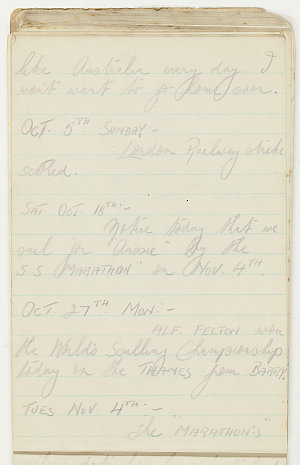 like Australia every day I
won't want to go home soon.
OCT. 5TH. SUNDAY. -
London Railway strike
settled.
SAT. OCT. 18TH. -
Notice today that we
sail for "Aussie" by the
S.S. MARATHON" on NOV. 4TH.
OCT. 27TH. MON: -
ALF. FELTON won
the World's Sculling Championship
today on the THAMES from BARRY.
TUES. NOV. 4TH. -
The "MARATHON'S"